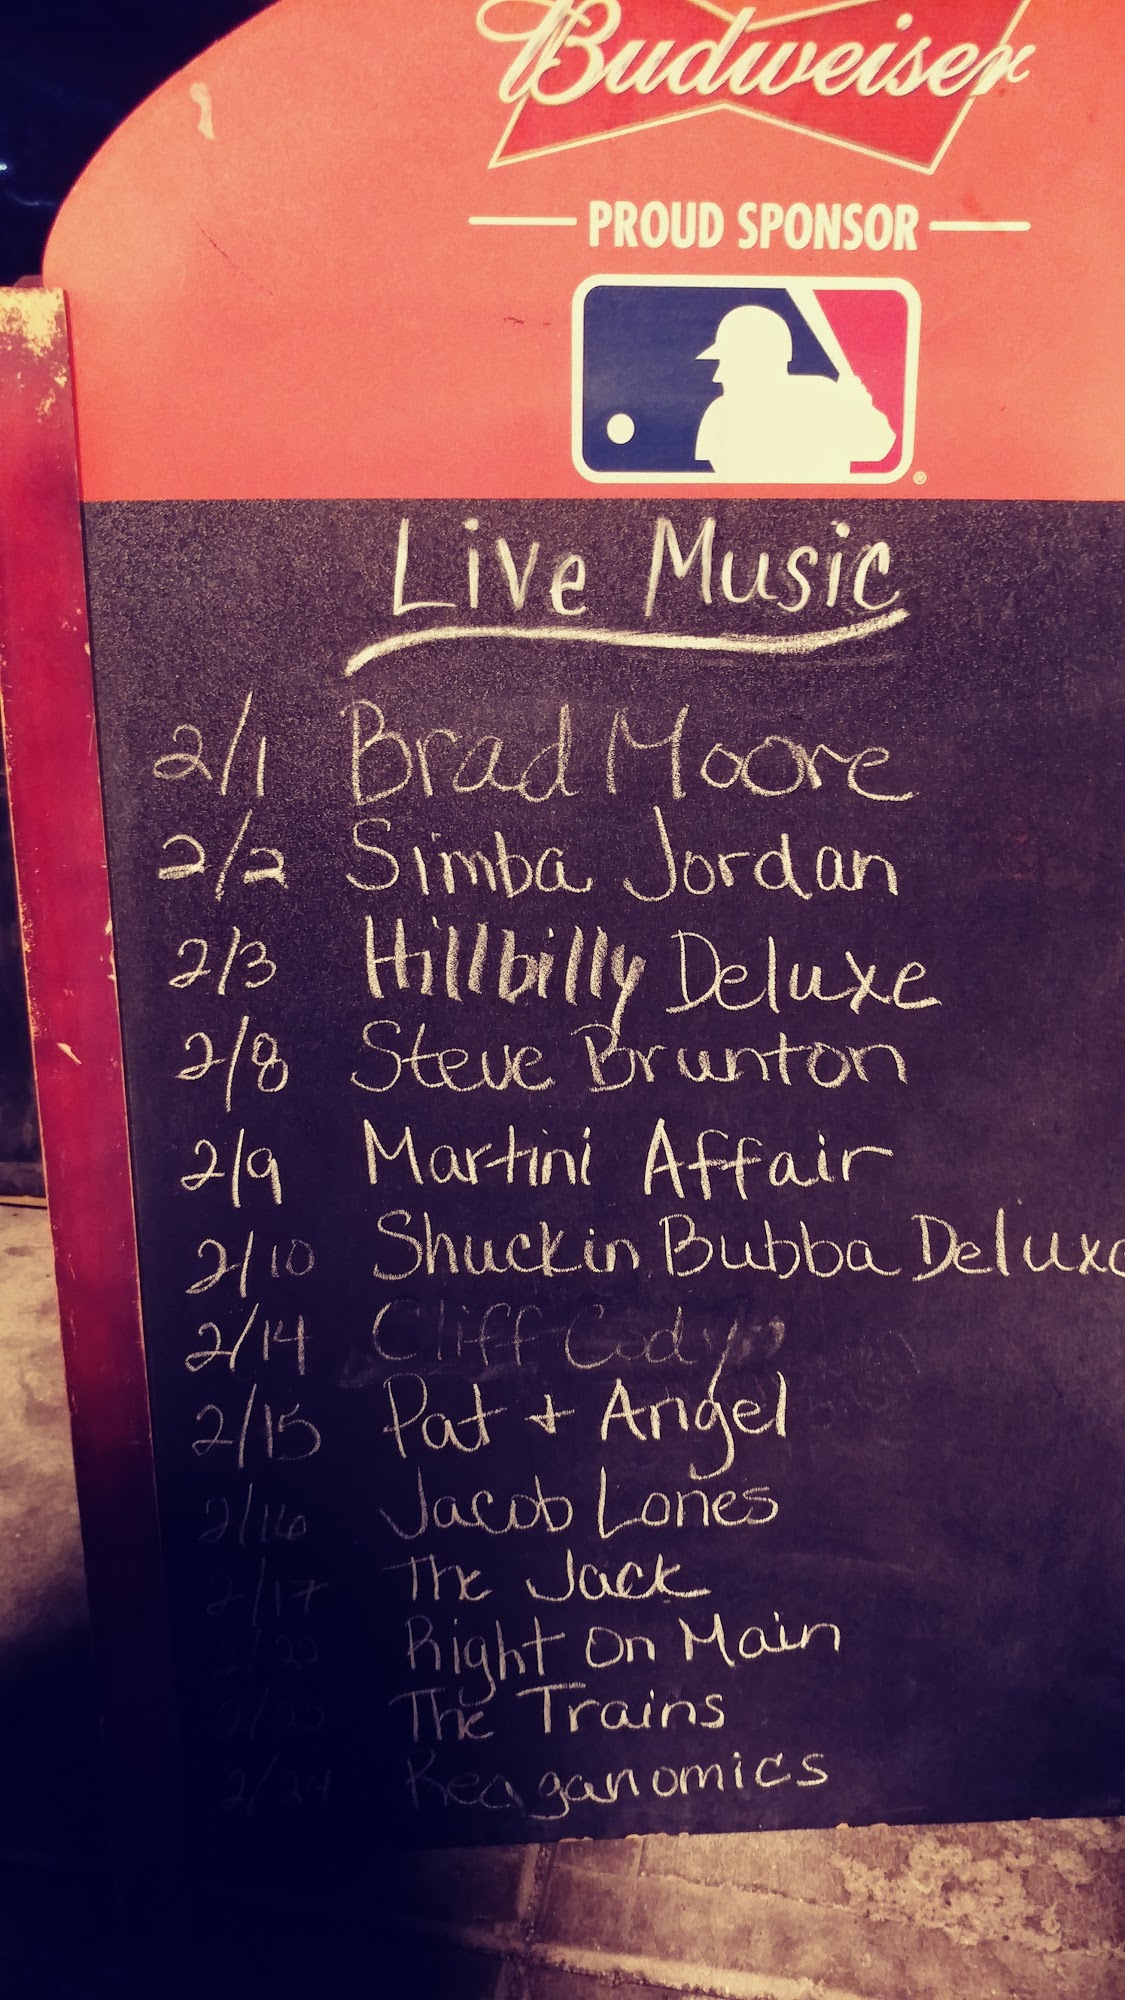 Budweiser
PROUD SPONSOR
Live Music
2/1 Brad Moore
2/2 Simba Jordan
2/3 Hillbilly Deluxe
2/8 Steve Brunton
2/9 Martini Affair
2/10 Shuckin Bubba Deluxe
2/14 Cliff Cody
2/15 Pat + Angel
2/16 Jacob Lones
2/17 The Jack
2/22 Right On Main
2/23 The Trains
2/24 Reaganomics